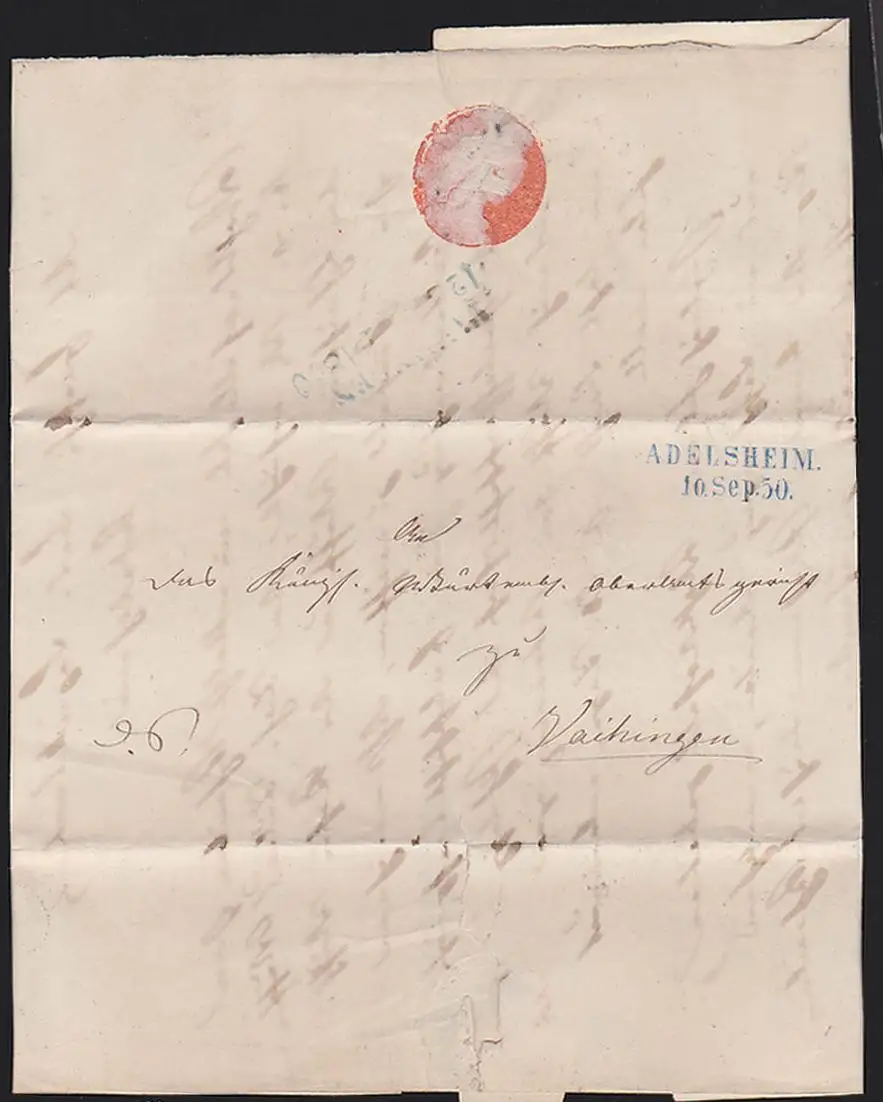 ADELSHEIM.
10.Sep.50.
An
das Königl. Würtembg. Oberamtsgericht
zu
Vaihingen